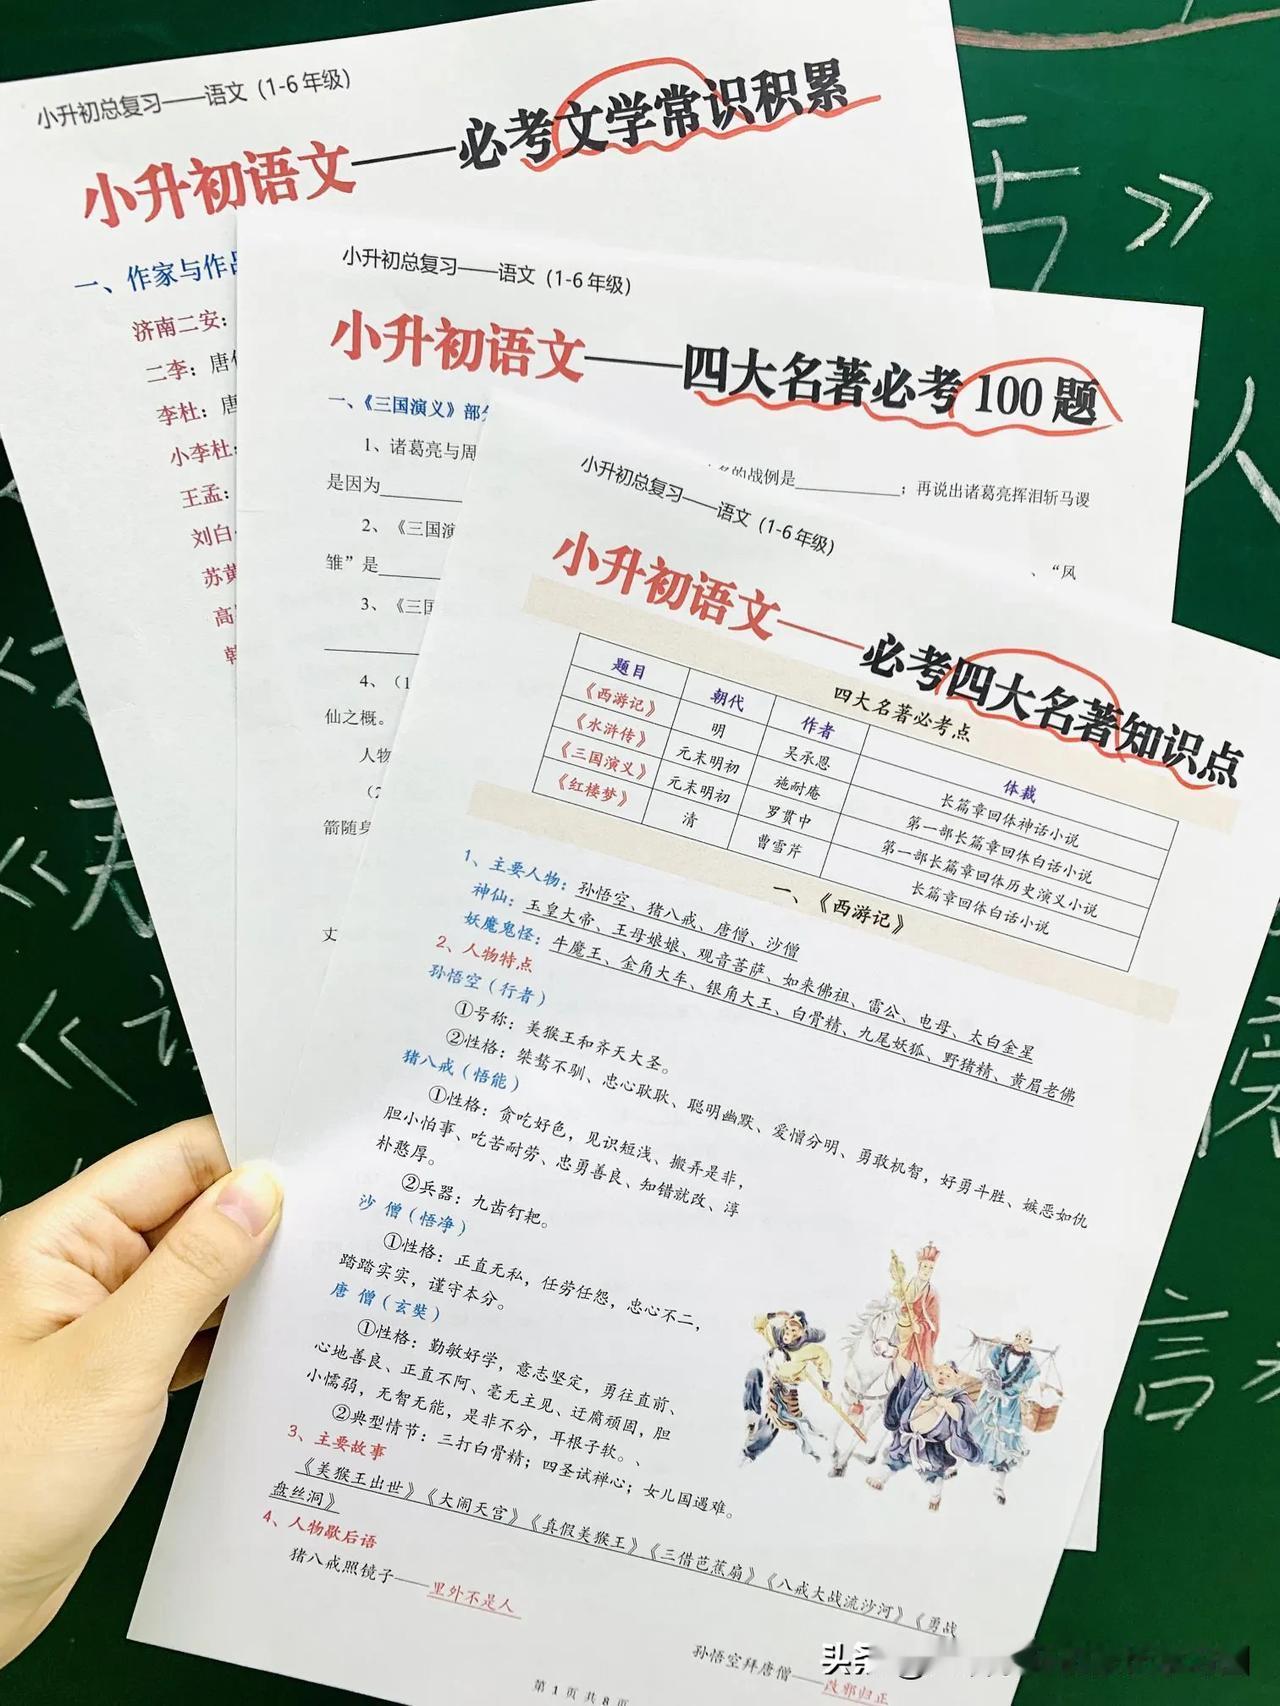 小升初总复习——语文（1-6年级）
小升初语文——必考文学常识积累
一、作家与作品
济南二安：
二李：唐
李杜：唐
小李杜：
王孟：
刘白
苏黄
高
韩
小升初总复习——语文（1-6年级）
小升初语文——四大名著必考100题
一、《三国演义》部分
1、诸葛亮与周
名的战例是__________；再说出诸葛亮挥泪斩马谡
是因为
2、《三国演
、“凤
雏”是
3、《三国
4、（1
仙之概。
人物
（2
箭随身
丈
小升初总复习——语文（1-6年级）
小升初语文——必考四大名著知识点
四大名著必考点
题目 朝代 作者 体裁
《西游记》 明 吴承恩 长篇章回体神话小说
《水浒传》 元末明初 施耐庵 第一部长篇章回体白话小说
《三国演义》 元末明初 罗贯中 第一部长篇章回体历史演义小说
《红楼梦》 清 曹雪芹 长篇章回体白话小说
一、《西游记》
1、主要人物：孙悟空、猪八戒、唐僧、沙僧
神仙：玉皇大帝、王母娘娘、观音菩萨、如来佛祖、雷公、电母、太白金星
妖魔鬼怪：牛魔王、金角大车、银角大王、白骨精、九尾妖狐、野猪精、黄眉老佛
2、人物特点
孙悟空（行者）
①号称：美猴王和齐天大圣。
②性格：桀骜不驯、忠心耿耿、聪明幽默、爱憎分明、勇敢机智，好勇斗胜、嫉恶如仇
猪八戒（悟能）
①性格：贪吃好色，见识短浅、搬弄是非，
胆小怕事、吃苦耐劳、忠勇善良、知错就改、淳
朴憨厚。
②兵器：九齿钉耙。
沙 僧（悟净）
①性格：正直无私，任劳任怨，忠心不二，
踏踏实实，谨守本分。
唐 僧（玄奘）
①性格：勤敏好学，意志坚定，勇往直前、
心地善良、正直不阿、毫无主见、迂腐顽固，胆
小懦弱，无智无能，是非不分，耳根子软。、
②典型情节：三打白骨精；四圣试禅心；女儿国遇难。
3、主要故事
《美猴王出世》《大闹天宫》《真假美猴王》《三借芭蕉扇》《八戒大战流沙河》《勇战
盘丝洞》
4、人物歇后语
猪八戒照镜子——里外不是人
孙悟空拜唐僧——改邪归正
第 1 页 共 8 页
头条